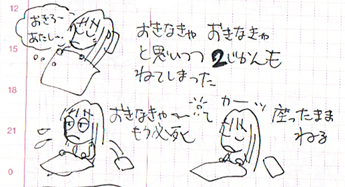 12
おきろ〜
あたし〜
おきなきゃ おきなきゃ
と思いつつ 2じかんも
ねてしまった
15
18
おきなきゃ〜 って
もう必死
カーッ
座ったまま
ねる
21
0